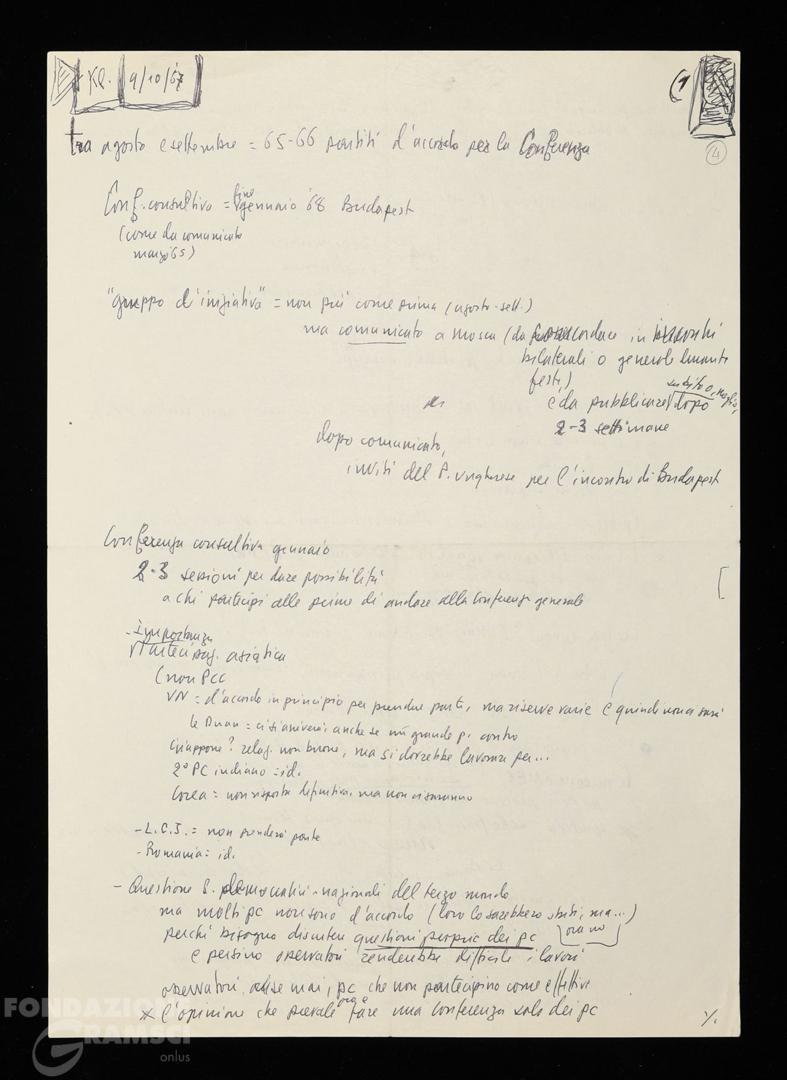 Kl. 9/10/67
(1
4
tra agosto e settembre = 65-66 partiti d'accordo per la Conferenza
Conf. consultiva = fine gennaio '68 Budapest
(come da comunicato
marzo 65)
"gruppo d'iniziativa" = non più come prima (agosto-sett.)
ma comunicato a Mosca (da concordare in incontri
bilaterali o generale
è da pubblicare subito o, meglio, dopo
2-3 settimane
dopo comunicato,
inviti del P. ungherese per l'incontro di Budapest
Conferenza consultiva gennaio
2-3 sessioni per dare possibilità
a chi partecipi alle prime di andare alla Conferenza generale
- importanza
partecipaz. asiatica
(non PCC
VN = d'accordo in principio per prendere parte, ma riserve varie e quindi non ci sarà
Le Duan = ci si arriverà anche se un grande p. contro
Giappone? relaz. non buone, ma si dovrebbe lavorare per...
2° PC indiano = id.
Corea = non risposta definitiva, ma non ci saranno
- L.C.J. = non prenderà parte
- Romania = id.
- Questione p. democratici-nazionali del terzo mondo
ma molti pc non sono d'accordo (loro lo sarebbero stati, ma...)
perché bisogna discutere questioni proprie dei pc
ora no
e persino osservatori renderebbe difficile i lavori
osservatori, semmai, pc che non partecipino come effettivi
x l'opinione che prevale ora è fare una Conferenza solo dei pc
1/.
FONDAZIONE
GRAMSCI
onlus